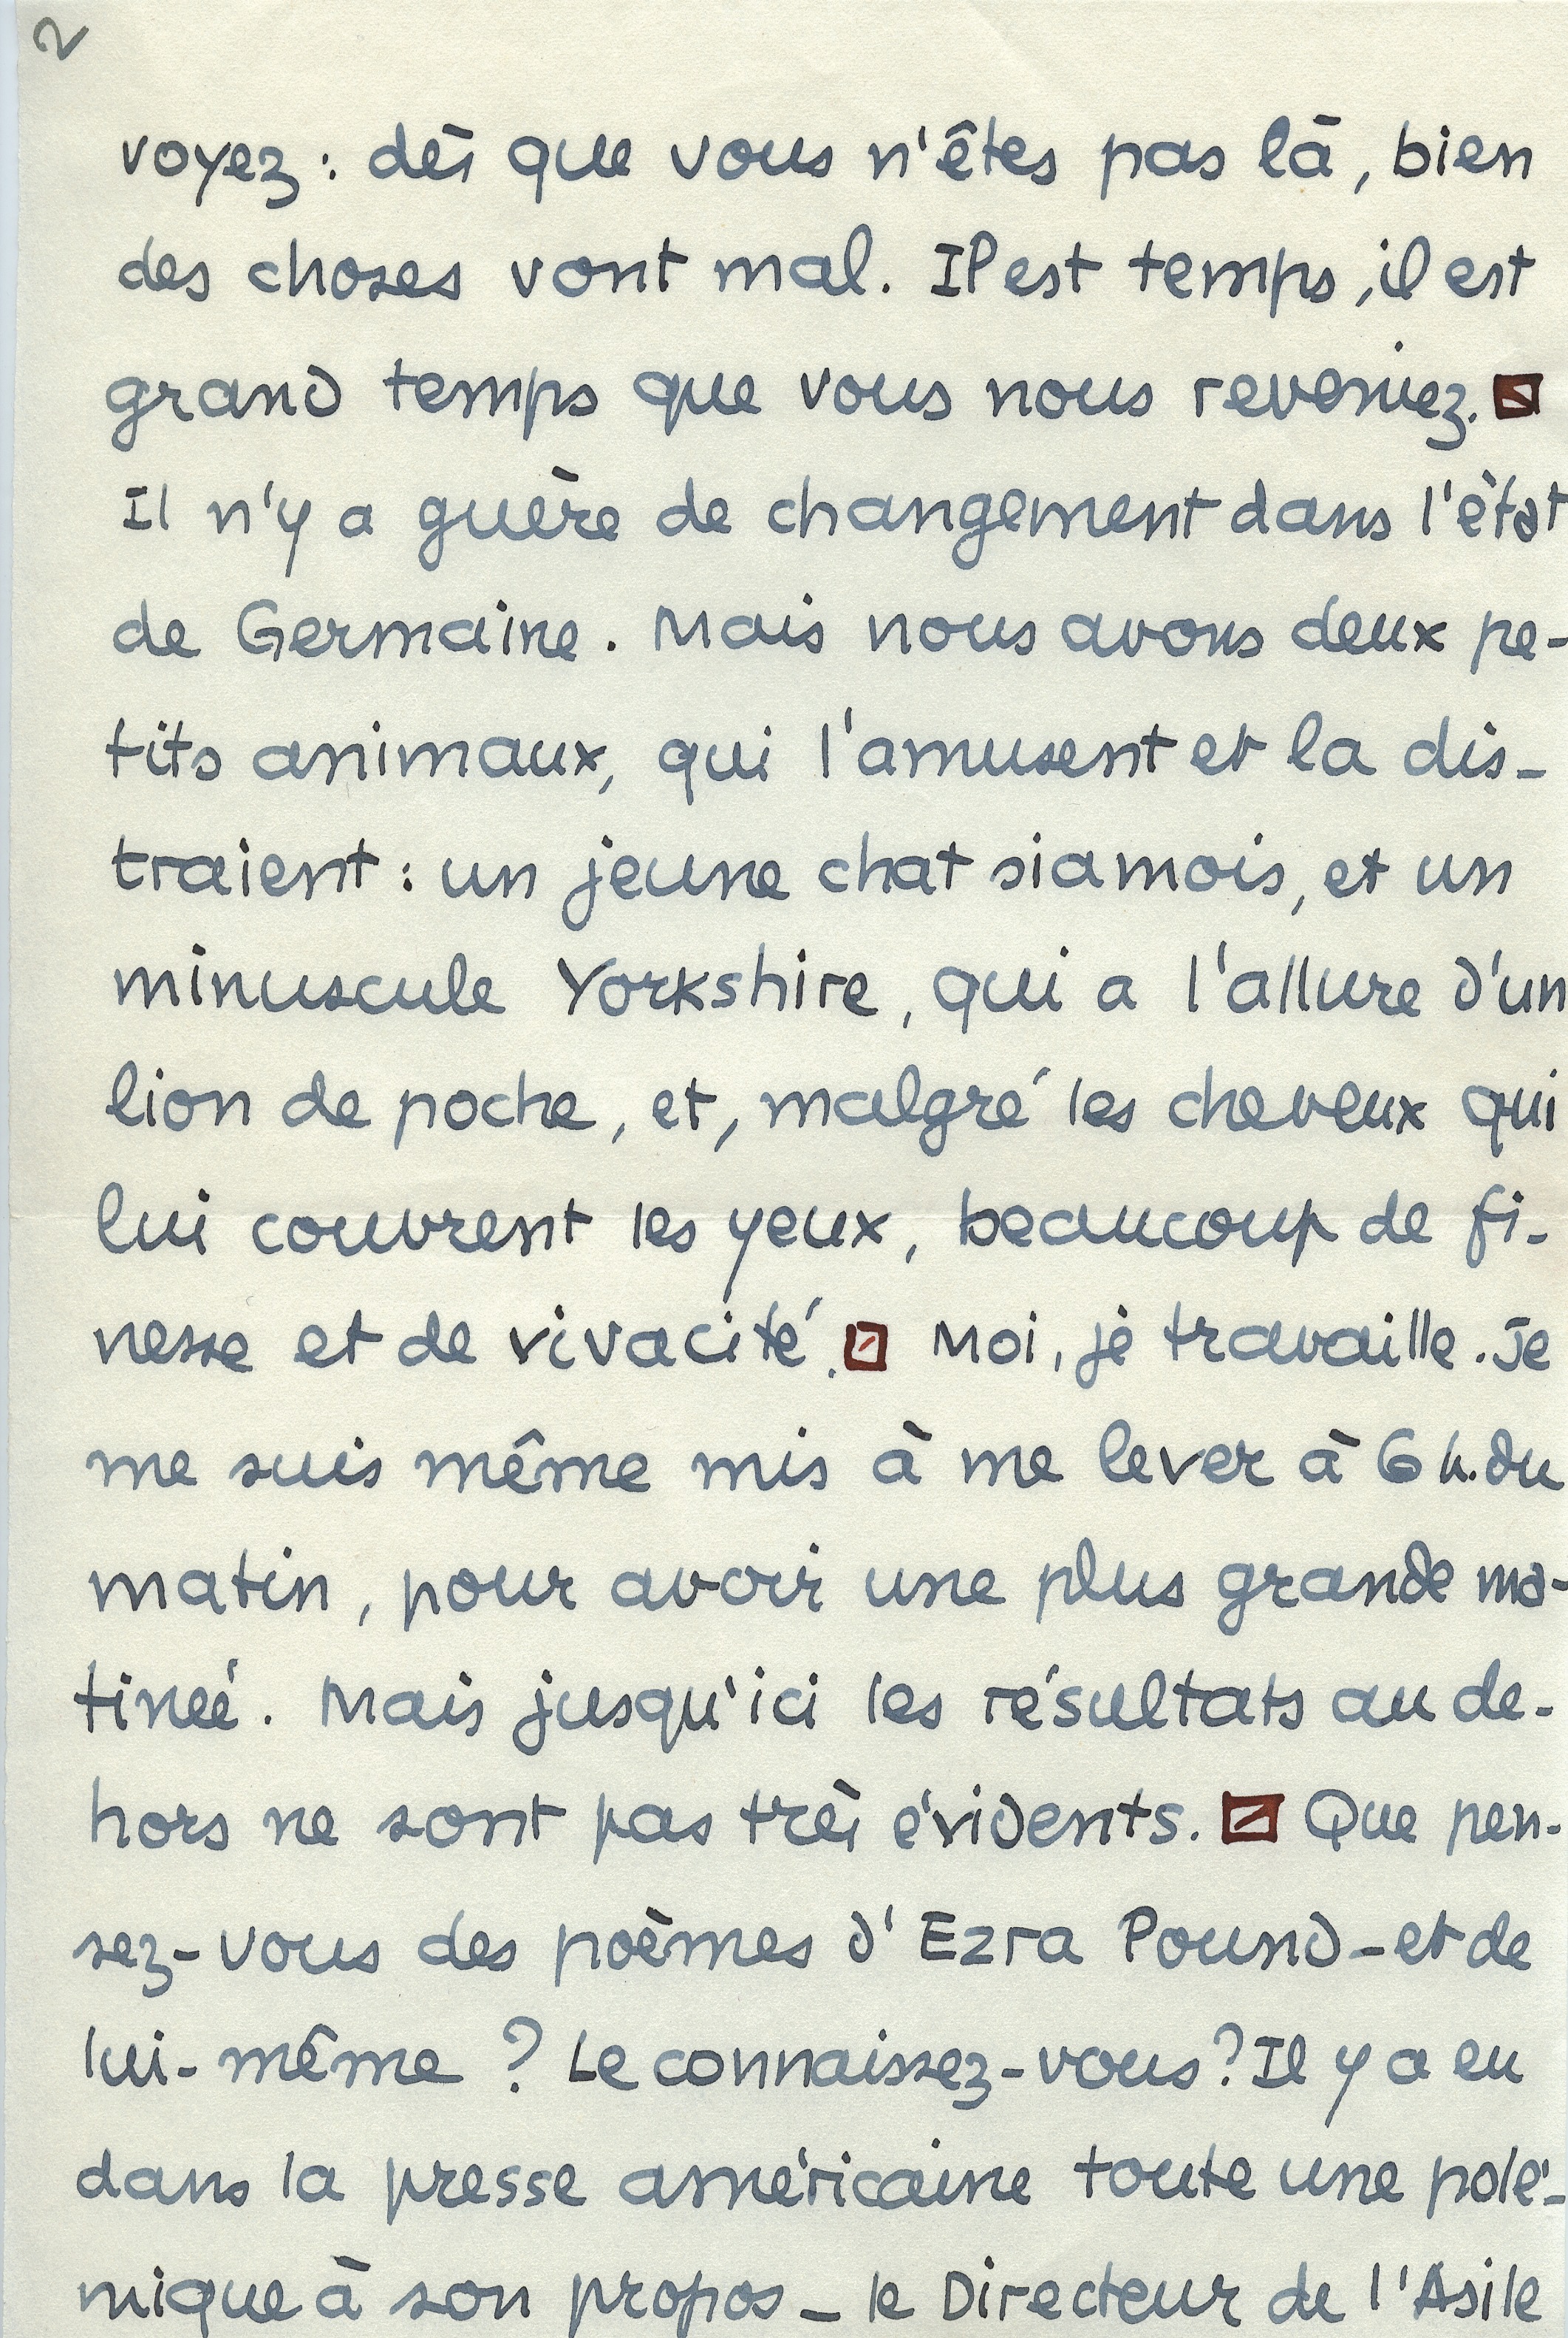 2
voyez : dès que vous n'êtes pas là, bien
des choses vont mal. Il est temps, il est
grand temps que vous nous reveniez.
Il n'y a guère de changement dans l'état
de Germaine. Mais nous avons deux pe-
tits animaux, qui l'amusent et la dis-
traient : un jeune chat siamois, et un
minuscule Yorkshire, qui a l'allure d'un
lion de poche, et, malgré les cheveux qui
lui couvrent les yeux, beaucoup de fi-
nesse et de vivacité. Moi, je travaille. Je
me suis même mis à me lever à 6 h. du
matin, pour avoir une plus grande ma-
tinée. Mais jusqu'ici les résultats au de-
hors ne sont pas très évidents. Que pen-
sez-vous des poèmes d'Ezra Pound - et de
lui-même ? Le connaissez-vous ? Il y a eu
dans la presse américaine toute une polé-
mique à son propos - le Directeur de l'Asile